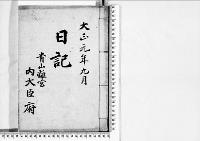 大正元年九月
日記
青山離宮
内大臣府